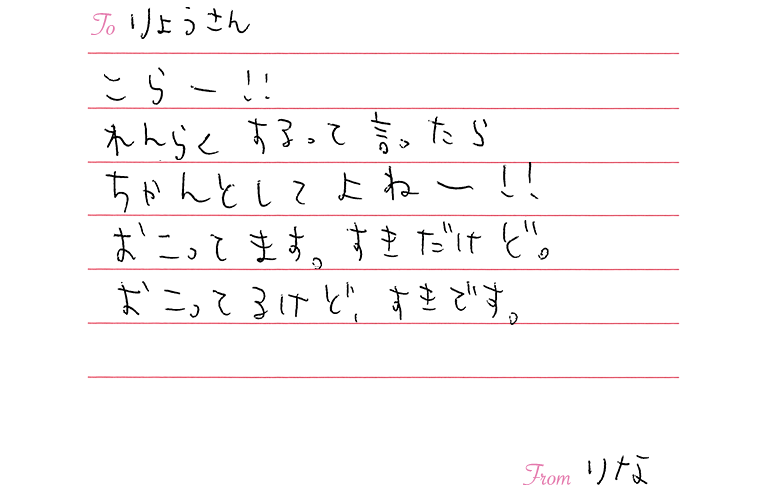 To りょうさん
こらー!!
れんらくするって言ったら
ちゃんとしてよねー!!
おこってます。すきだけど。
おこってるけど、すきです。
From りな